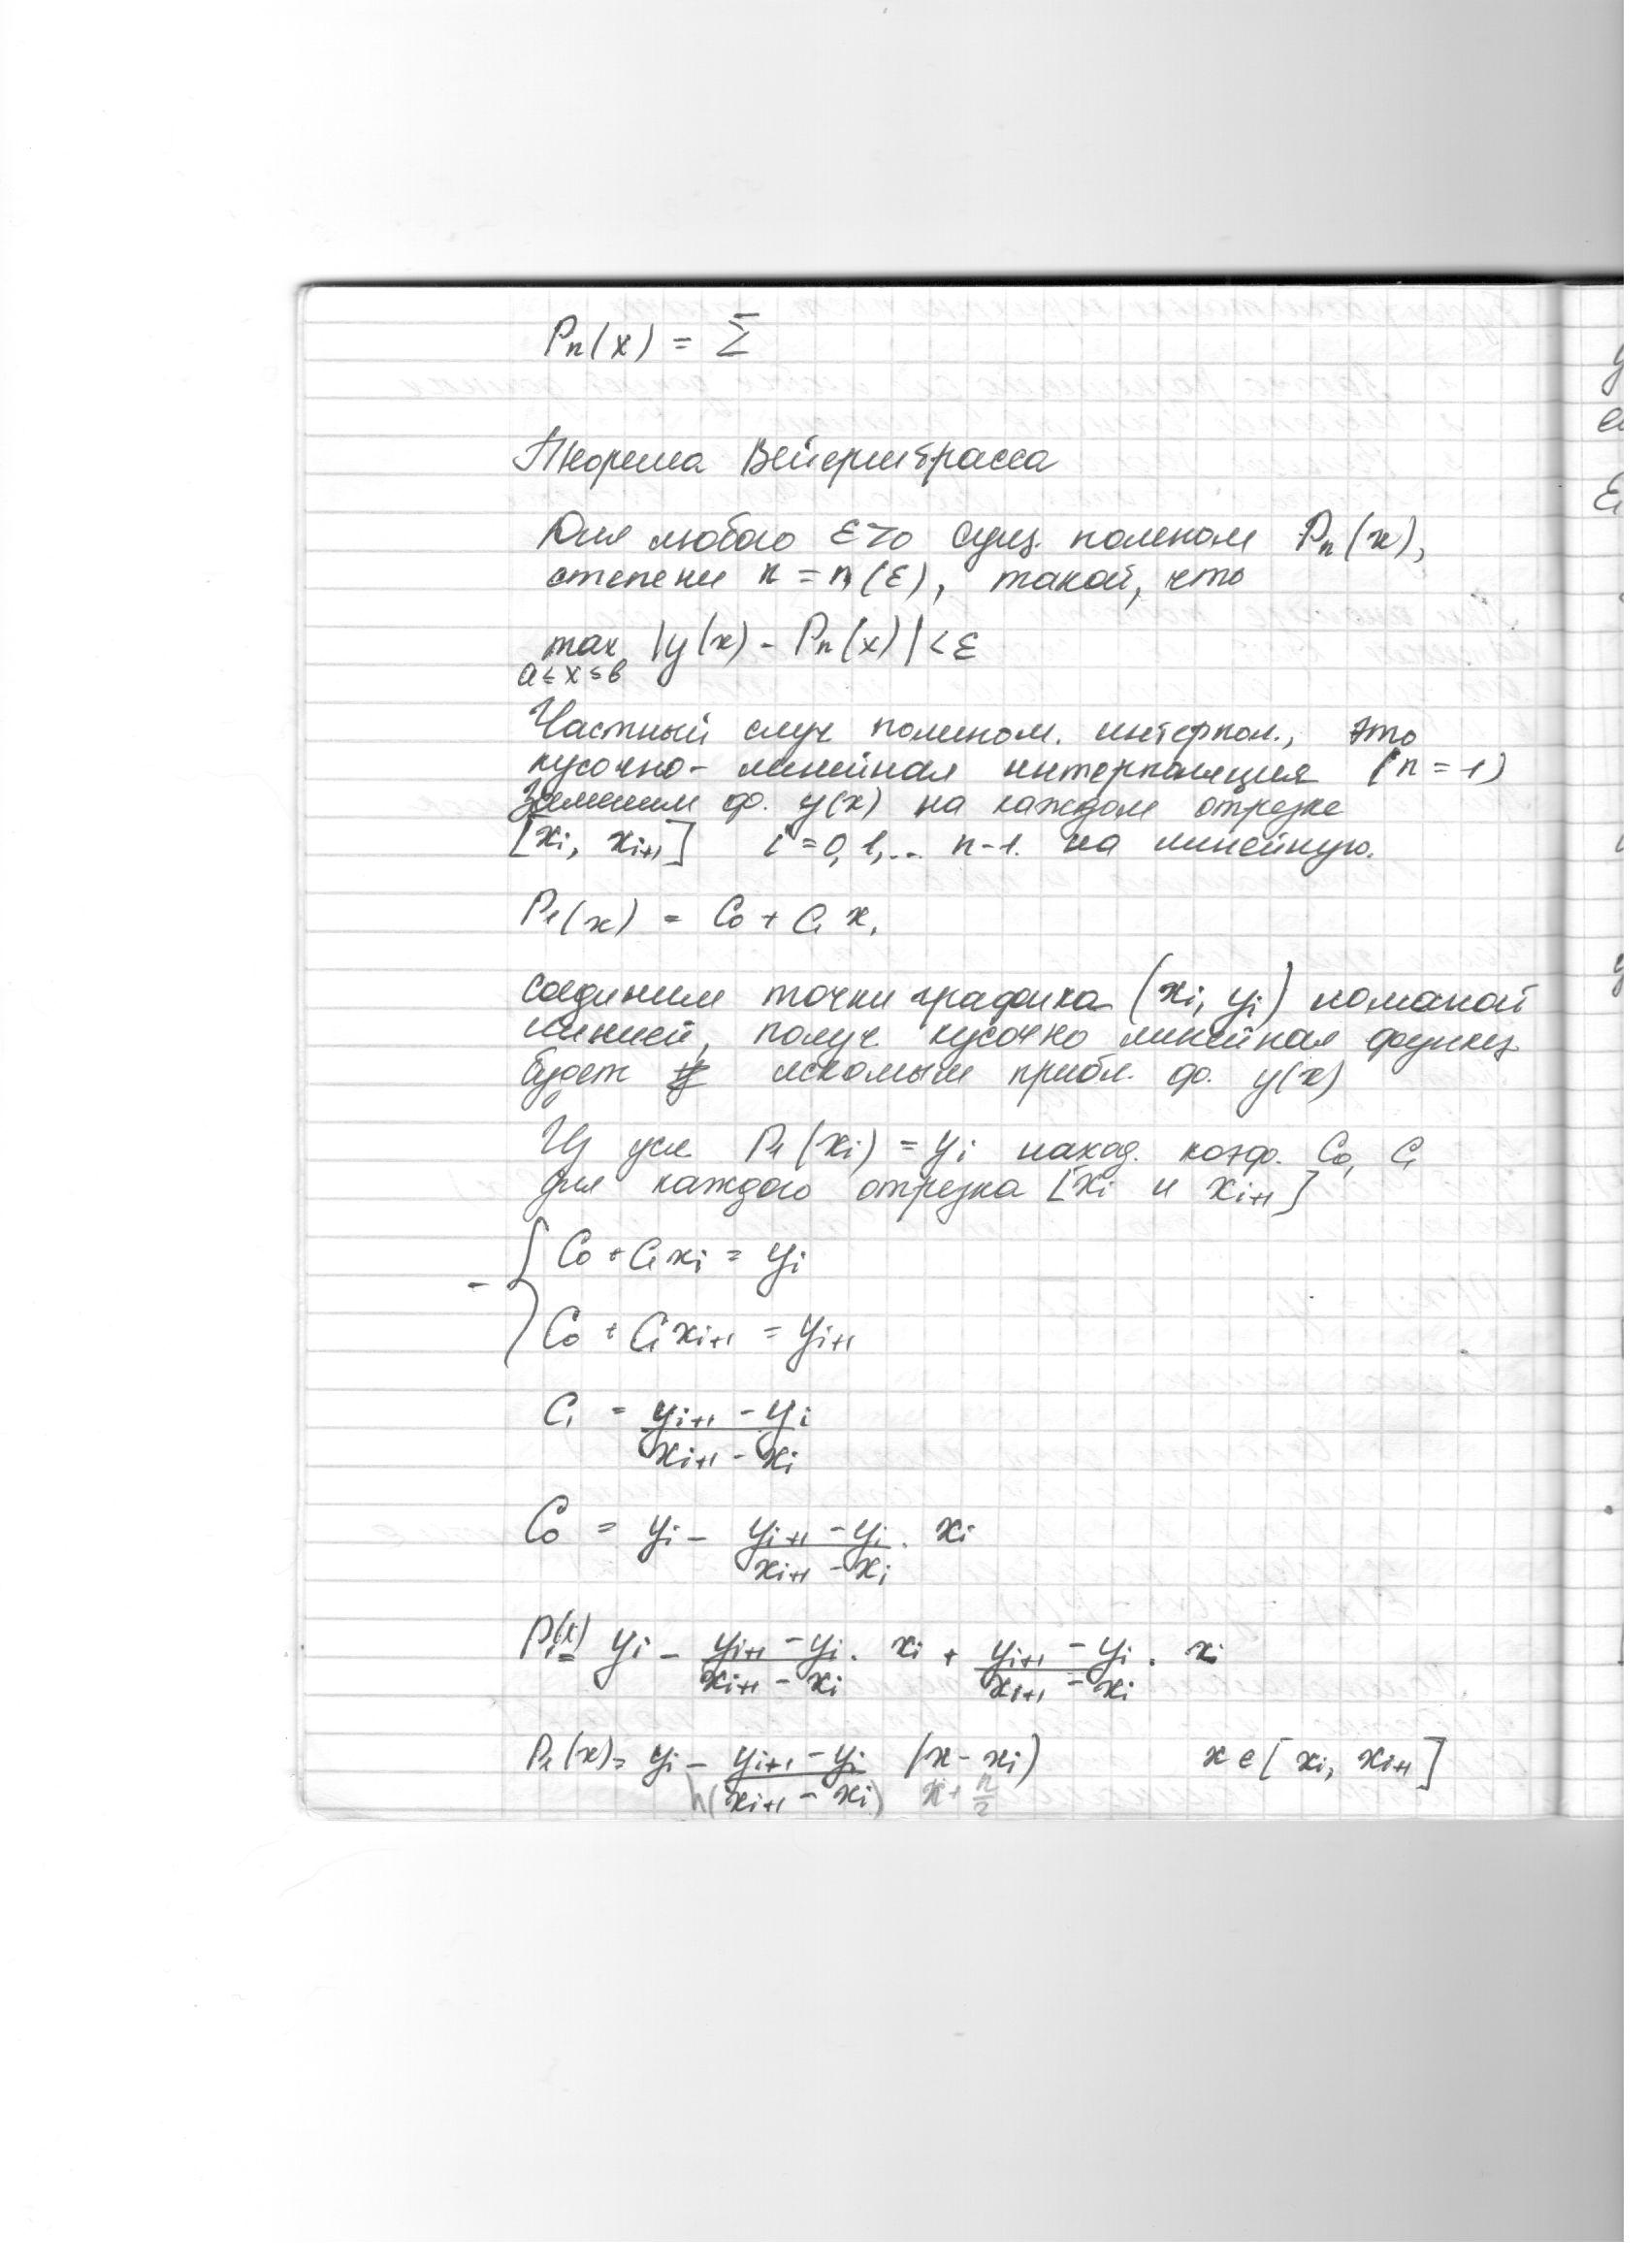 Pn(x) = Σ
Теорема Вейерштрасса
Для любого ε>0 сущ. полином Pn(x),
степени n = n(ε), такой, что
max |y(x) - Pn(x)| < ε
a≤x≤b
Частный случ полином. интерпол., это
кусочно-линейная интерполяция (n=1)
Заменим ф. y(x) на каждом отрезке
[xi, xi+1] i=0,1,... n-1. на линейную.
P1(x) = C0 + C1 x,
соединим точки графика (xi, yi) ломаной
линией, получ кусочно линейная функц
будет искомым прибл. ф. y(x)
Из усл P1(xi) = yi наход. коэф. C0, C1
для каждого отрезка [xi и xi+1]
- { C0 + C1xi = yi
C0 + C1xi+1 = yi+1
C1 = (yi+1 - yi)/(xi+1 - xi)
C0 = yi - (yi+1 - yi)/(xi+1 - xi) · xi
P1(x) = yi - (yi+1 - yi)/(xi+1 - xi) · xi + (yi+1 - yi)/(xi+1 - xi) · x
P1(x) = yi - (yi+1 - yi)/(xi+1 - xi) (x - xi) x ∈ [xi, xi+1]